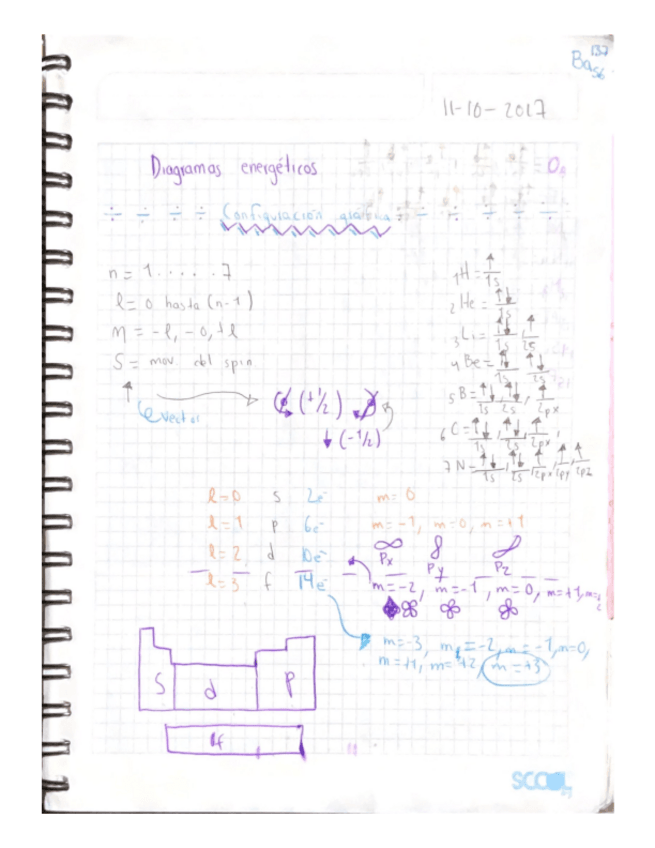 Ba 137 56
11-10-2017
Diagramas energéticos
÷ ÷ ÷ ÷ Configuración gráfica ÷ ÷ ÷ ÷ ÷
n = 1 . . . . . 7
l = 0 hasta (n-1)
m = -l, -0, +l
S = mov. del spin
↑ vector
(+1/2)
↓ (-1/2)
1H = ↑ 1s
2He = ↑↓ 1s
3Li = ↑↓ 1s, ↑ 2s
4Be = ↑↓ 1s, ↑↓ 2s
5B = ↑↓ 1s, ↑↓ 2s, ↑ 2px
6C = ↑↓ 1s, ↑↓ 2s, ↑ 2px,
7N = ↑↓ 1s, ↑↓ 2s, ↑ 2px, ↑ 2py, ↑ 2pz
l=0 s 2e⁻ m= 0
l=1 p 6e⁻ m= -1, m=0, m=+1
Px Py Pz
l=2 d 10e⁻
l=3 f 14e⁻
m=-2, m=-1, m=0, m=+1, m=+2
m=-3, m=-2, m=-1, m=0,
m=+1, m=+2, m=+3
S d P
f
SCOOL